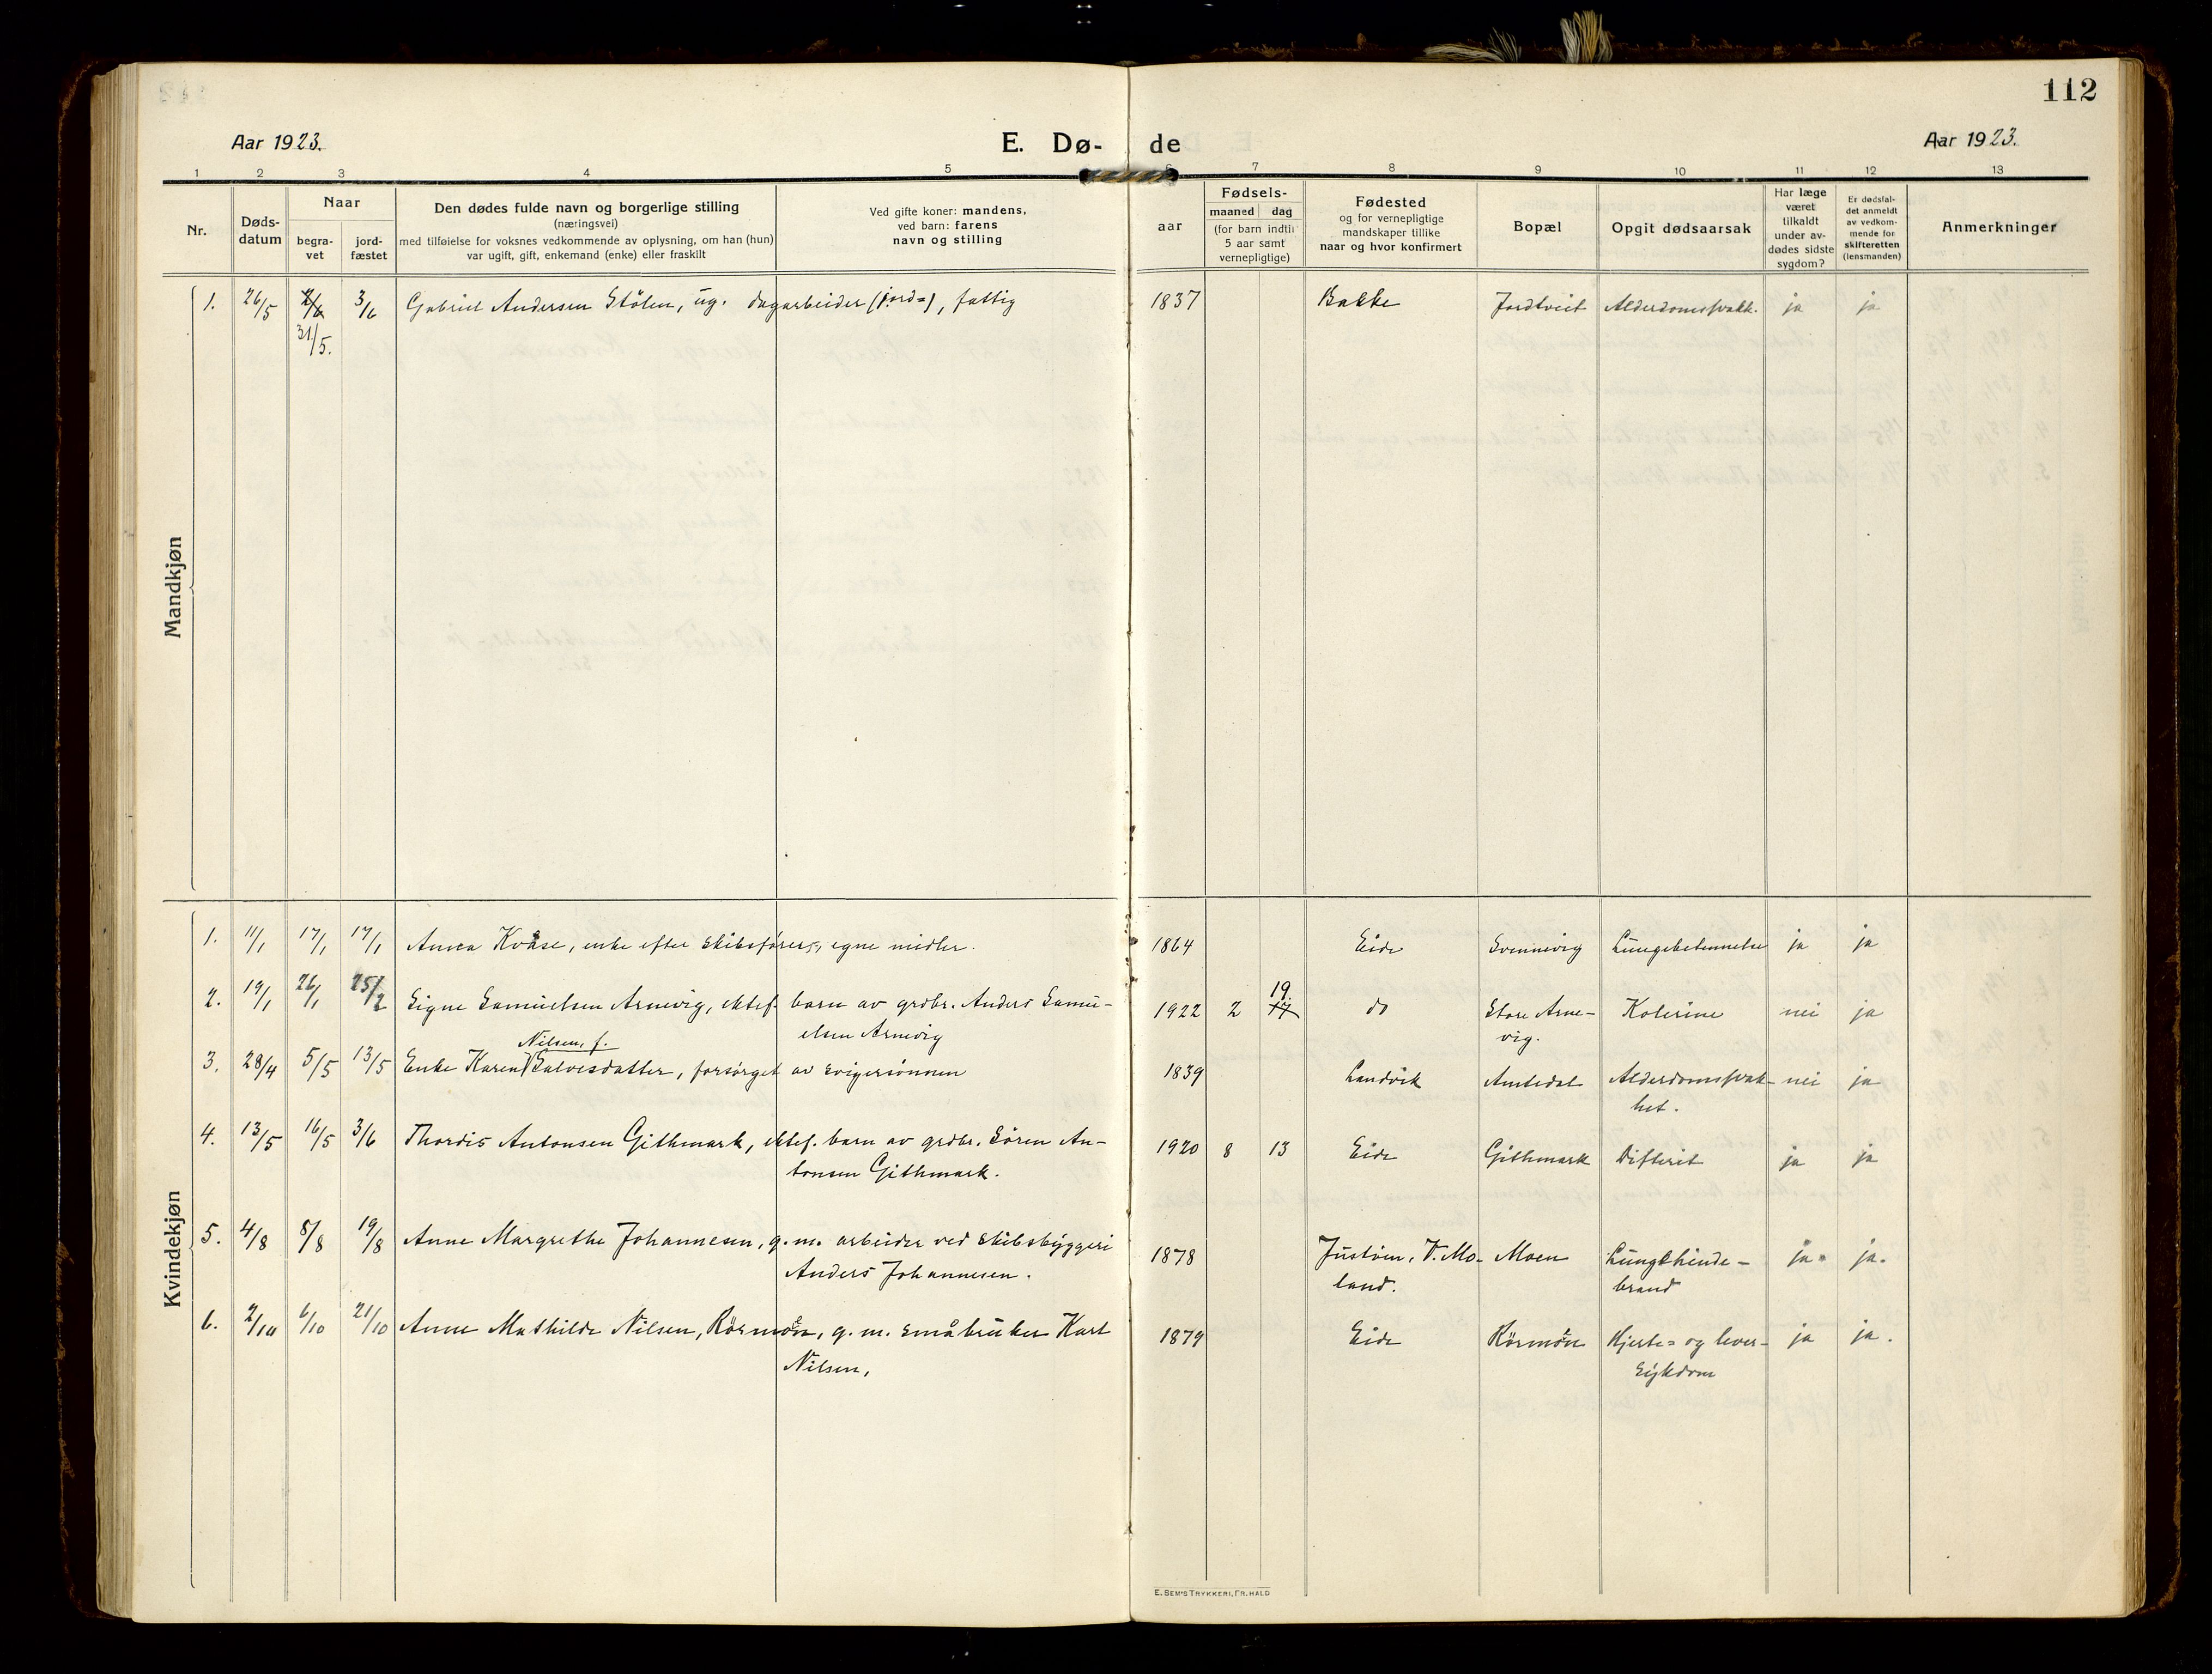 112
Aar 1923.
E. Dø- de
Aar 1923.
1 2 3 4 5 6 7 8 9 10 11 12 13
Nr.
Døds-
datum
Naar
begra-
vet
jord-
fæstet
Den dødes fulde navn og borgerlige stilling
(næringsvei)
med tilføielse for voksnes vedkommende av oplysning, om han (hun)
var ugift, gift, enkemand (enke) eller fraskilt
Ved gifte koner: mandens,
ved barn: farens
navn og stilling
aar
Fødsels-
maaned dag
(for barn indtil
5 aar samt
vernepligtige)
Fødested
og for vernepligtige
mandskaper tillike
naar og hvor konfirmert
Bopæl
Opgit dødsaarsak
Har læge
været
tilkaldt
under av-
dødes sidste
sygdom?
Er dødsfal-
det anmeldt
av vedkom-
mende for
skifteretten
(lensmanden)
Anmerkninger
Mandkjøn
1. 26/5 2/6 3/6 Gabriel Andersen Stölen, ug. dagarbeider (jord=), fattig 1837 Bakke Jordtveit Alderdomssvakk. ja ja
31/5.
Kvindekjøn
1. 11/1 17/1 17/1 Anna Kvåse, enke efter skibsförer, egne midler. 1864 Eide Svennevig Lungebetennelse ja ja
2. 19/1 26/1 25/2 Signe Samuelsen Arnevig, ektef. barn av grdbr. Anders Samu- 1922 2 17 19 do Store Arne- Kolerine nei ja
elsen Arnevig vig.
Nilsen, f.
3. 28/4 5/5 13/5 Enke Karen Salvesdatter, forsørget av svigersønnen 1839 Landvik Amtedal Alderdomssvak- nei ja
het.
4. 13/5 16/5 3/6 Thordis Antonsen Githmark, ektef. barn av grdbr. Sören An- 1920 8 13 Eide Githmark Difterit ja ja
tonsen Githmark.
5. 4/8 8/8 19/8 Anne Margrethe Johannesen, g.m. arbeider ved skibsbyggeri 1878 Justöen, V. Mo- Moen Lungehinde- ja ja.
Anders Johannesen. land. brand
6. 2/10 6/10 21/10 Anne Mathilde Nilsen, Rörmoen, g.m. småbruker Karl 1879 Eide Rörmoen Hjerte= og lever- ja ja.
Nilsen, sykdom
E. SEM'S TRYKKERI, FR. HALD